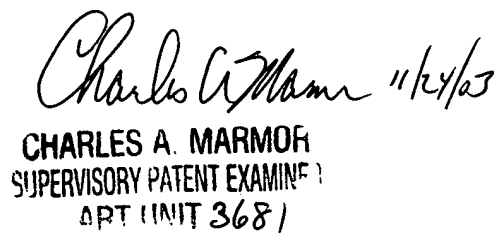 Charles A Marmor 11/24/03
CHARLES A. MARMOR
SUPERVISORY PATENT EXAMINER
ART UNIT 3681